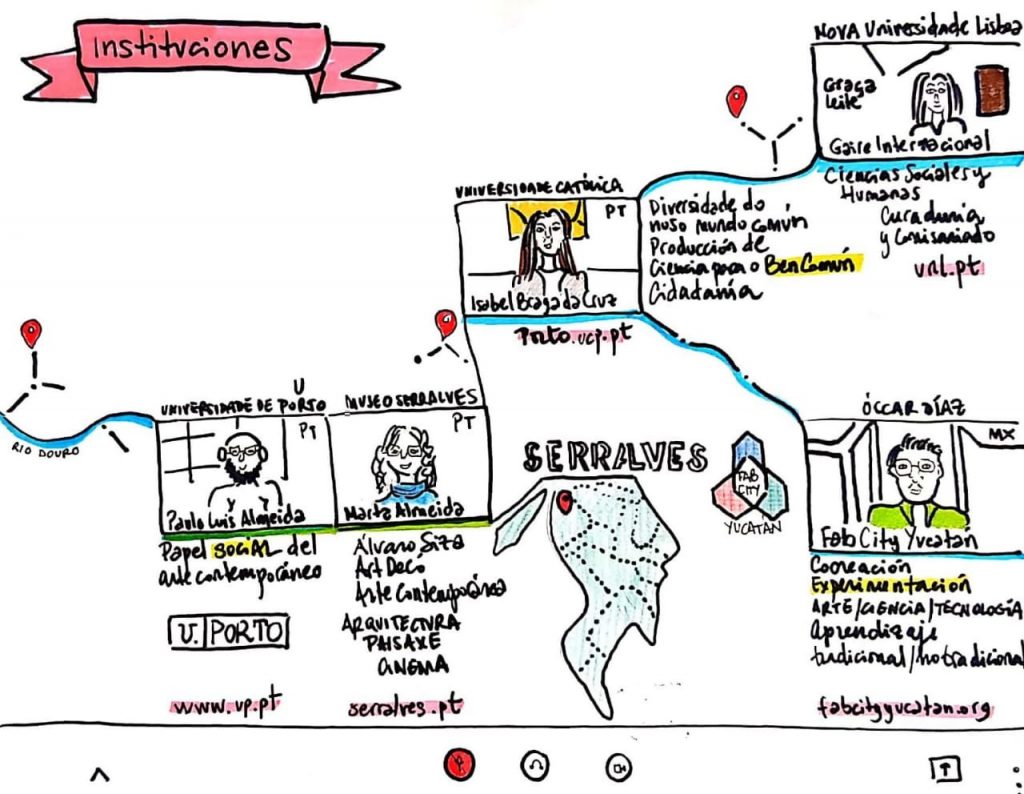 Instituciones
NOVA Universidade Lisboa
Graça
Leite
Gaire Internacional
Ciencias Sociales y
Humanas
Curaduria
y Comisariado
vnl.pt
UNIVERSIDADE CATÓLICA
PT
Isabel Braga da Cruz
Porto.ucp.pt
Diversidade do
noso mundo común
Producción de
Ciencia para o Ben Común
Cidadanía
RIO DOURO
U
UNIVERSIDADE DE PORTO
PT
Paulo Luis Almeida
Papel social del
arte contemporáneo
U. PORTO
www.up.pt
MUSEO SERRALVES
PT
Marta Almeida
Álvaro Siza
Art Deco
Arte Contemporánea
ARQUITECTURA
PAISAXE
CINEMA
serralves.pt
SERRALVES
FAB
CITY
YUCATAN
ÓCCAR DÍAZ
MX
Fab City Yucatán
Cocreación
Experimentación
ARTE/CIENCIA/TECNOLOGÍA
Aprendizaje
tradicional/notradicional
fabcityyucatan.org